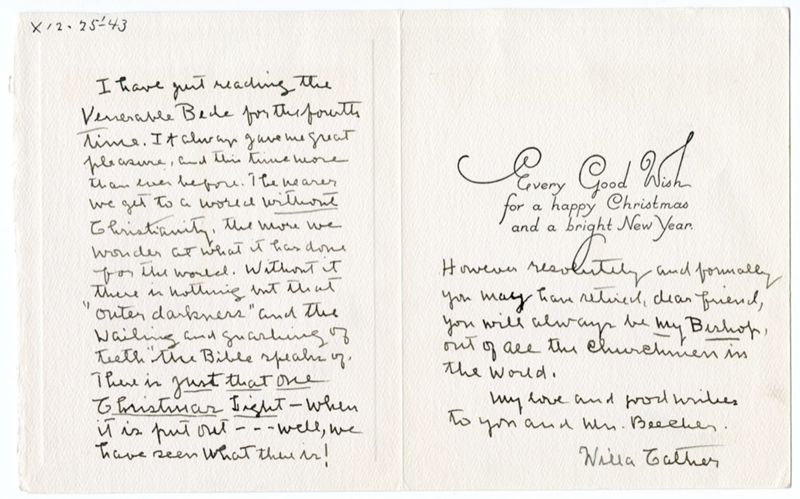 X12·25-43
I have just reading the
Venerable Bede for the fourth
time. It always gave me great
pleasure, and this time more
than ever before. The nearer
we get to a world without
Christianity, the more we
wonder at what it has done
for the world. Without it
there is nothing but that
"outer darkness" and the
wailing and gnashing of
teeth" the Bible speaks of.
There is just that one
Christmas Light — when
it is put out --- well, we
have seen what there is!
Every Good Wish
for a happy Christmas
and a bright New Year.
However resolutely and formally
you may have retired, dear friend,
you will always be my Bishop,
out of all the churchmen in
the world.
My love and good wishes
to you and Mrs. Beecher.
Willa Cather